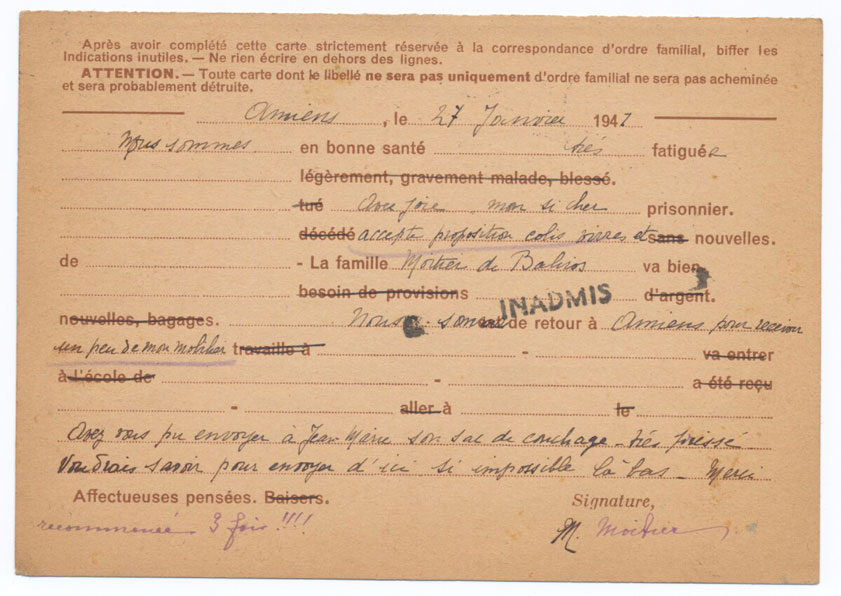 Après avoir complété cette carte strictement réservée à la correspondance d'ordre familial, biffer les
indications inutiles. — Ne rien écrire en dehors des lignes.
ATTENTION. — Toute carte dont le libellé ne sera pas uniquement d'ordre familial ne sera pas acheminée
et sera probablement détruite.
Amiens, le 27 Janvier 1941
Nous sommes en bonne santé très fatigués
légèrement, gravement malade, blessé.
tué Avec joie mon si cher prisonnier.
décédé accepte proposition colis vivres et sans nouvelles.
de - La famille Moitier de va bien
besoin de provisions d'argent.
INADMIS
nouvelles, bagages. Nous sommes de retour à Amiens pour recevoir
un peu de mon mobilier travaille à - va entrer
à l'école de - a été reçu
- aller à - le
Avez vous pu envoyer à Jean Marie son sac de couchage - très pressé
Voudrais savoir pour envoyer d'ici si impossible là bas - Merci
Affectueuses pensées. Baisers. Signature,
recommencé 3 fois !!! M. Moitier